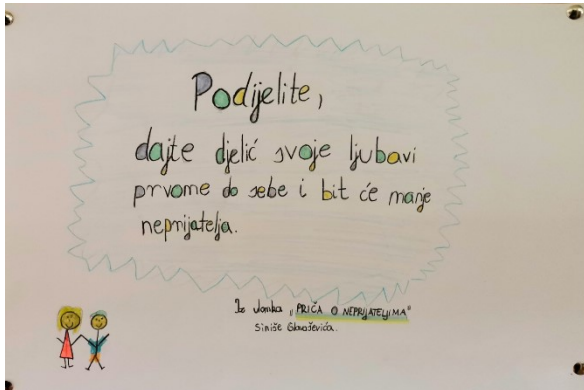 Podijelite,
dajte djelić svoje ljubavi
prvome do sebe i bit će manje
neprijatelja.
Iz ulomka „PRIČA O NEPRIJATELJIMA"
Siniše Glavaševića.